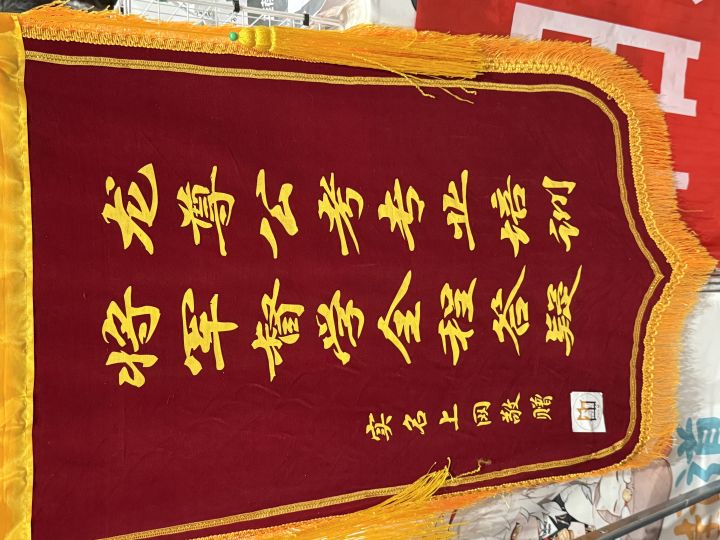 龙尊公考专业培训
将军督学全程答疑
实名上网敬赠